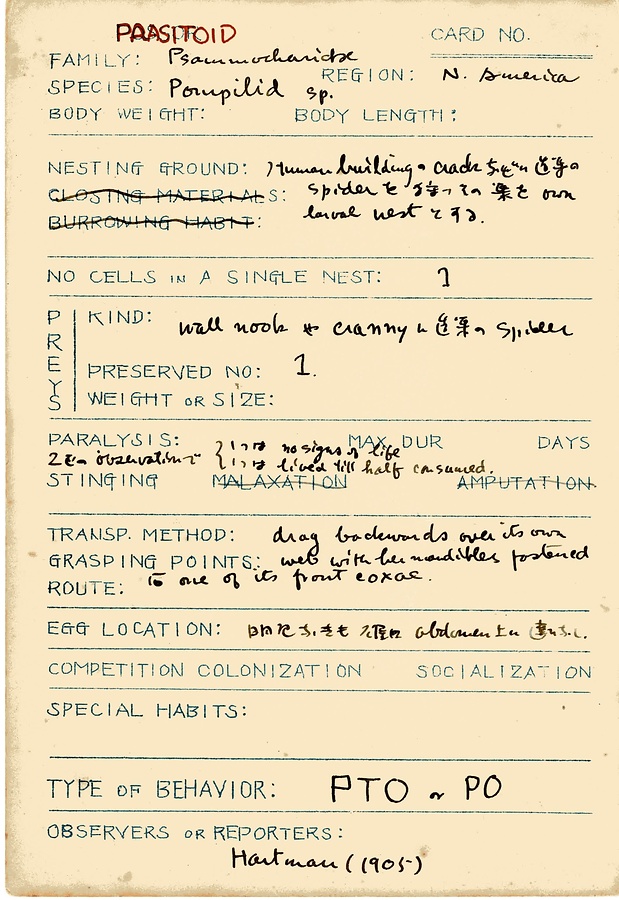 PARASITOID CARD NO.
FAMILY: Psammocharidae
REGION: N. America
SPECIES: Pompilid sp.
BODY WEIGHT: BODY LENGTH:
NESTING GROUND: Human building crack 造巣
CLOSING MATERIALS: spider を 狩って の 巣を own
BURROWING HABIT: larval nest とする.
NO CELLS IN A SINGLE NEST: 1
PREYS
KIND: wall nook や cranny に 造巣の spider
PRESERVED NO: 1.
WEIGHT OR SIZE:
PARALYSIS: MAX DUR DAYS
1つは no signs of life
observation で 1つは lived till half consumed.
STINGING MALAXATION AMPUTATION
TRANSP. METHOD: drag backwards over its own
GRASPING POINTS: web with her mandibles fastened
ROUTE: to one of its front coxae.
EGG LOCATION: abdomen
COMPETITION COLONIZATION SOCIALIZATION
SPECIAL HABITS:
TYPE OF BEHAVIOR: PTO or PO
OBSERVERS OR REPORTERS:
Hartman (1905)